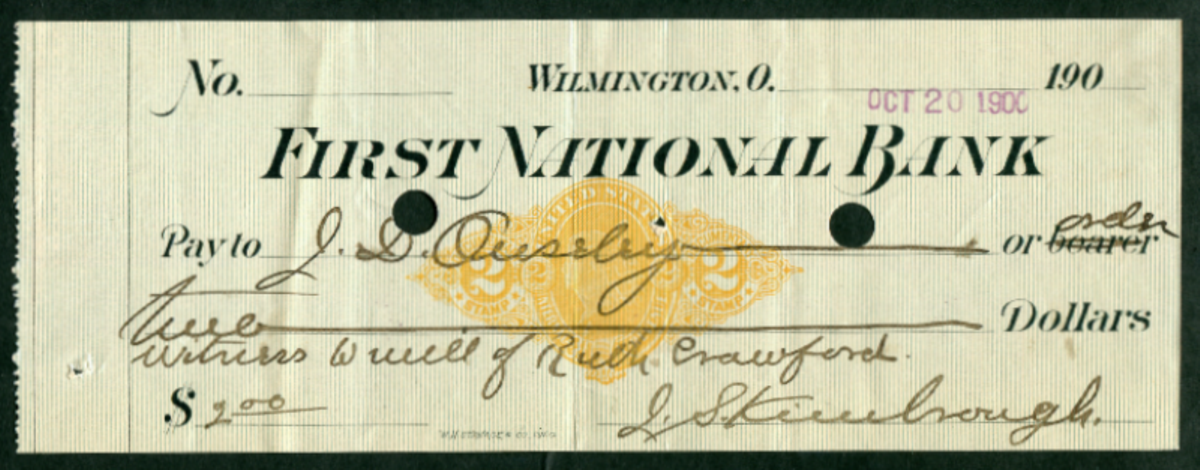 No. WILMINGTON, O. 190
OCT 20 1900
FIRST NATIONAL BANK
Pay to J. D. Ouseley or bearer order
UNITED STATES
2 2 2
STAMP STAMP
Two Dollars
Witness to will of Ruth Crawford.
$ 2.00 J. S. Kimbrough.